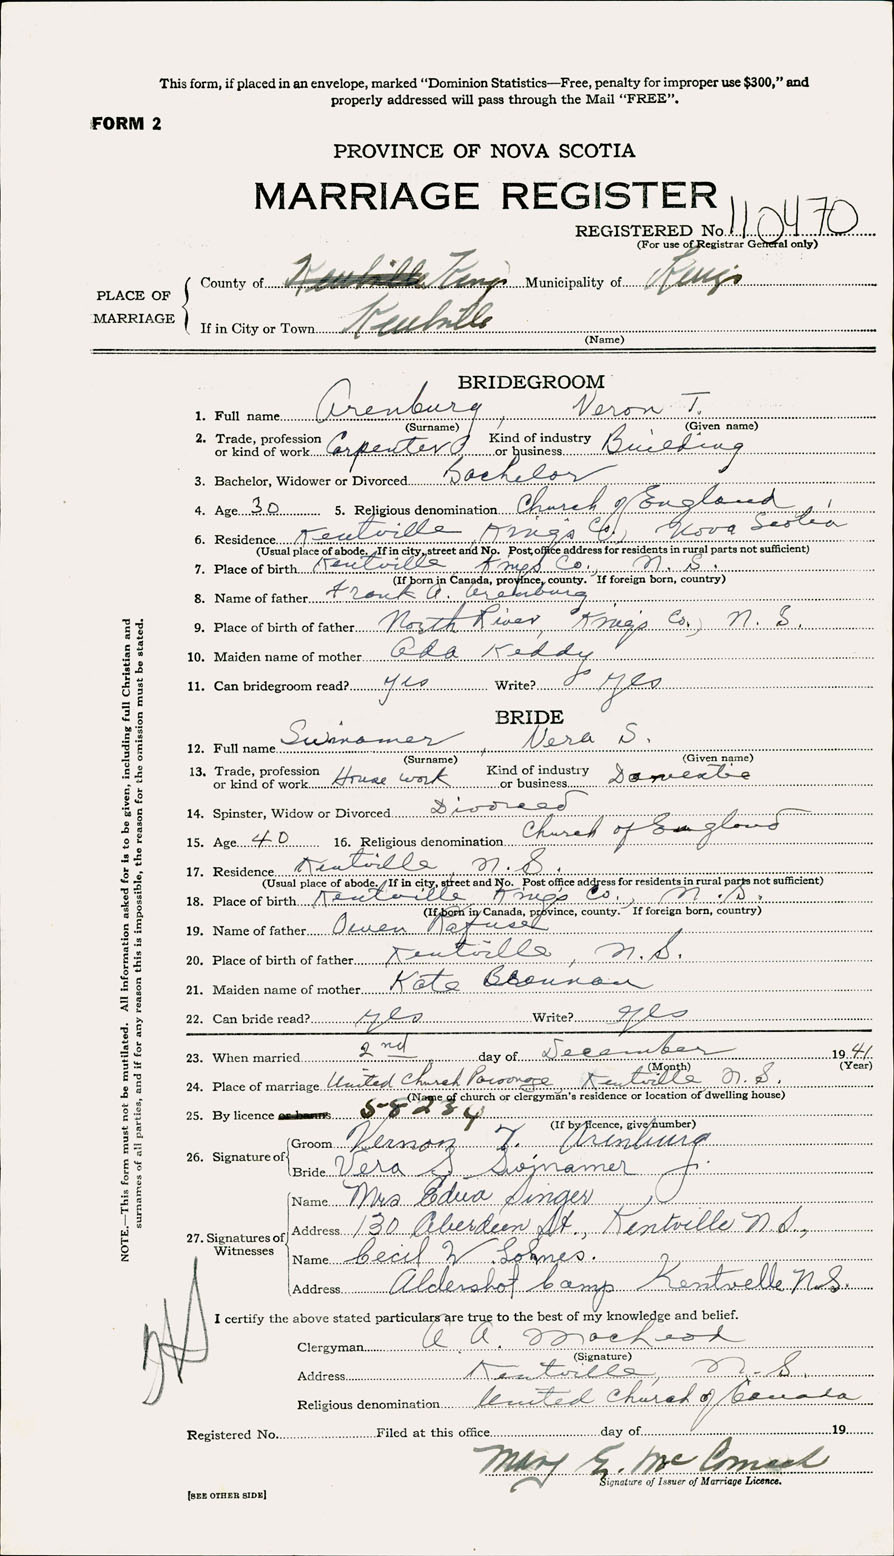 This form, if placed in an envelope, marked "Dominion Statistics—Free, penalty for improper use $300," and
properly addressed will pass through the Mail "FREE".
FORM 2
PROVINCE OF NOVA SCOTIA
MARRIAGE REGISTER
REGISTERED No. 110470
(For use of Registrar General only)
PLACE OF MARRIAGE
County of Kentville Kings Municipality of Kings
If in City or Town Kentville
(Name)
BRIDEGROOM
1. Full name Arenburg, Veron T.
(Surname) (Given name)
2. Trade, profession or kind of work Carpenter Kind of industry or business Building
3. Bachelor, Widower or Divorced Bachelor
4. Age 30 5. Religious denomination Church of England
6. Residence Kentville, Kings Co., Nova Scotia
(Usual place of abode. If in city, street and No. Post office address for residents in rural parts not sufficient)
7. Place of birth Kentville Kings Co., N. S.
(If born in Canada, province, county. If foreign born, country)
8. Name of father Frank A. Arenburg
9. Place of birth of father North River, Kings Co., N. S.
10. Maiden name of mother Ada Keddy
11. Can bridegroom read? yes Write? yes
BRIDE
12. Full name Swinamer, Vera S.
(Surname) (Given name)
13. Trade, profession or kind of work House work Kind of industry or business Domestic
14. Spinster, Widow or Divorced Divorced
15. Age 40 16. Religious denomination Church of England
17. Residence Kentville, N. S.
(Usual place of abode. If in city, street and No. Post office address for residents in rural parts not sufficient)
18. Place of birth Kentville Kings Co., N. S.
(If born in Canada, province, county. If foreign born, country)
19. Name of father Owen Rafuse
20. Place of birth of father Kentville, N. S.
21. Maiden name of mother Kate Brennan
22. Can bride read? yes Write? yes
23. When married 2nd day of December 1941
(Month) (Year)
24. Place of marriage United Church Parsonage, Kentville N. S.
(Name of church or clergyman's residence or location of dwelling house)
25. By licence or banns 58234
(If by licence, give number)
26. Signature of
Groom Vernon T. Arenburg
Bride Vera S. Swinamer
27. Signatures of Witnesses
Name Mrs Edna Singer
Address 130 Aberdeen St., Kentville N S,
Name Cecil W. Lohnes.
Address Aldershot Camp Kentville N.S.
I certify the above stated particulars are true to the best of my knowledge and belief.
Clergyman A. A. MacLeod
(Signature)
Address Kentville, N. S.
Religious denomination United Church of Canada
Registered No. Filed at this office day of 19
Mary E. Mc
Signature of Issuer of Marriage Licence.
[SEE OTHER SIDE]
NOTE.—This form must not be mutilated. All information asked for is to be given, including full Christian and
surnames of all parties, and if for any reason this is impossible, the reason for the omission must be stated.